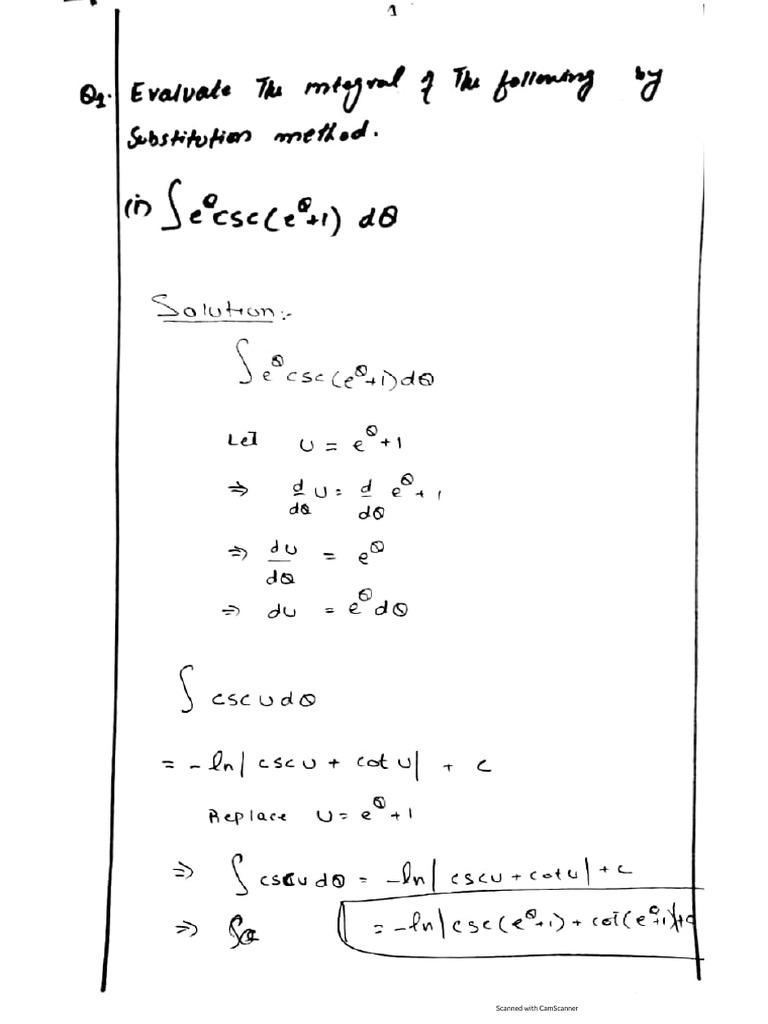 1
Q1. Evaluate The integral of The following by
Substitution method.
(i) ∫e^θ csc(e^θ+1) dθ
Solution:-
∫e^θ csc(e^θ+1)dθ
Let u = e^θ+1
⇒ d/dθ u = d/dθ e^θ+1
⇒ du/dθ = e^θ
⇒ du = e^θ dθ
∫ csc u dθ
= -ln|csc u + cot u| + c
Replace u = e^θ+1
⇒ ∫csc u dθ = -ln|csc u + cot u| + c
⇒ = -ln|csc(e^θ+1) + cot(e^θ+1)|+c
Scanned with CamScanner